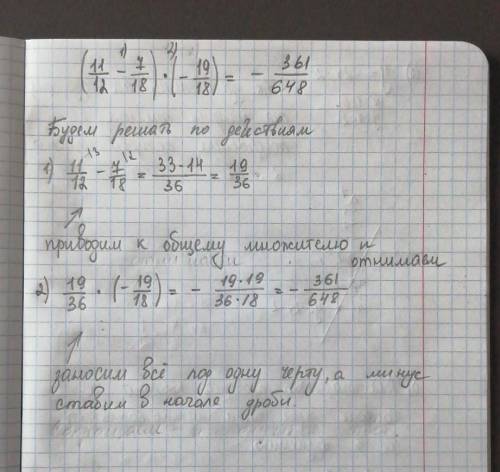 1) 2)
(11/12 - 7/18) · (- 19/18) = - 361/648
Будем решать по действиям
1) 11/12 \3 - 7/18 \2 = 33-14/36 = 19/36
приводим к общему множителю и
отнимаем
2) 19/36 · (- 19/18) = - 19·19/36·18 = - 361/648
заносим всё под одну черту, а минус
ставим в начале дроби.